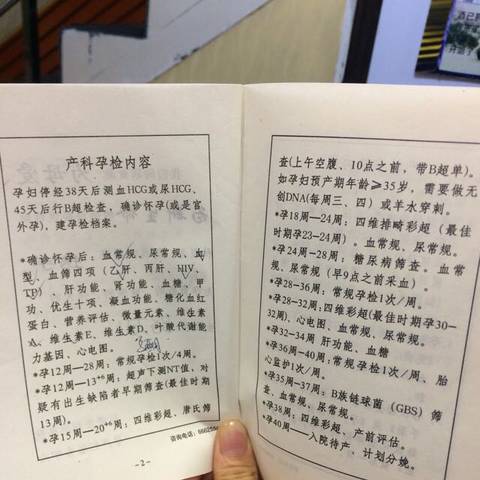 产科孕检内容
孕妇停经38天后测血HCG或尿HCG、
45天后行B超检查，确诊怀孕(或是宫
外孕)，建孕检档案。
*确诊怀孕后：血常规、尿常规、血
型、血筛四项（乙肝、丙肝、HIV、
TP）、肝功能、肾功能、血糖、甲
功、优生十项、凝血功能、糖化血红
蛋白、营养评估、微量元素、维生素
A、维生素E、维生素D、叶酸代谢能
力基因、心电图。
*孕12周—28周：常规孕检1次/4周。
*孕12周—13⁺⁶周：超声下测NT值，对
疑有出生缺陷者早期筛查(最佳时期
13周)。
*孕15周—20⁺⁶周：四维彩超、唐氏筛
咨询电话：
-2-
查(上午空腹、10点之前，带B超单)。
如孕妇预产期年龄≥35岁，需要做无
创DNA(每周三、四）或羊水穿刺。
*孕18周—24周：四维排畸彩超（最佳
时期孕23-24周）。血常规、尿常规。
*孕24周-28周：糖尿病筛查。血常
规、尿常规（早9点之前采血）。
*孕28-36周：常规孕检1次/周。
*孕28-32周：四维彩超(最佳时期孕30-
32周），心电图、血常规、尿常规。
*孕32-34周 肝功能、血糖
*孕36周-40周：常规孕检1次/周、胎
心监护1次/周。
*孕35周-37周：B族链球菌（GBS）筛
查、血常规、尿常规。
*孕38周：四维彩超、产前评估。
*孕40周——入院待产、计划分娩。